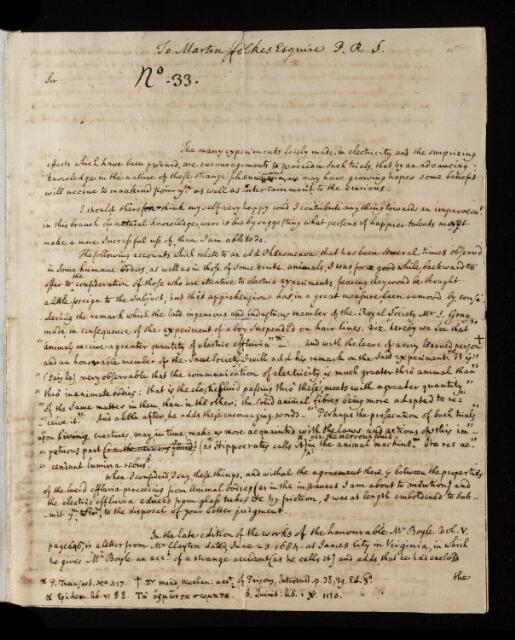 To Martin ffolkes Esquire P. R. S.
Sir
No. 33.
The many experiments lately made in electricity, and the surprizing
effects which have been produced, are encouragements to proceed in such trials, that by an advancing
knowledge in the nature of those strange phenomena, we may have growing hopes some benefit
will accrue to mankind from ym as well as entertainment to the curious.
I should therefore think my self very happy cou'd I contribute any thing towards an improvemt
in this branch of natural knowledge, were it but by suggesting what persons of happier talents might
make a more successful use of, than I am able to do.
The following accounts which relate to an odd Phenomenon, that has been several times observed
in some humane bodies, as well as in those of some brute animals, I was for a good while backward to
offer to the consideration of those who are attentive to electric experiments, fearing they wou'd be thought
a little foreign to the subject, but this apprehension has in a great measure been removed by consi-
dering the remark which the late ingenious and industrious member of the Royal Society Mr S. Gray
made in consequence of the experiment of a boy suspended on hair lines. Viz. hereby we see that
"animals receive a greater quantity of electric effluvia &c" and with the leave of a very learned person †
and an honorable member of the same society I will add his remark on the said experiment. "It is"
"(says he) very observable that the communication of electricity is much greater thro' animal than"
"thro' inanimate bodies: that is the elastic fluid passing thro' these, meets with a greater quantity"
"of the same matter in them than in the other; the solid animal fibres being more adapted to re-"
"ceive it". And a little after, he adds these encouraging words - "Perhaps the prosecution of such trials
upon living creatures may in time, make us more acquainted with the laws and actions of this im-
petuous part (as Hippocrates calls it) viz. the nervous fluid in the animal machine. Ita res ac
cendunt lumina rebus.
When I consider'd, I say, these things, and withal the agreement there is between the properties
of the lucid effluvia proceeding from animal bodies (as in the instances I am about to mention) and
the electric effluvia educed from glass tubes &c by friction, I was at length embolden'd to sub-
mit ym Sir to the disposal of your better judgment.
In the late edition of the works of the honourable Mr Boyle Vol. V.
page 646, is a letter from Mr Clayton dated June 23 1684. at James City in Virginia, in which
he gives Mr Boyle an acct of a strange accident (as he calls it) and adds that he has enclos'd
the
P. Transact. No 417. † Dr mead mechan. acct of Poisons, Introduct. p. 38, 39. Ed. 3d.
Epidem. lib. VI § 8. Τα ὁρμῶντα σωματα.